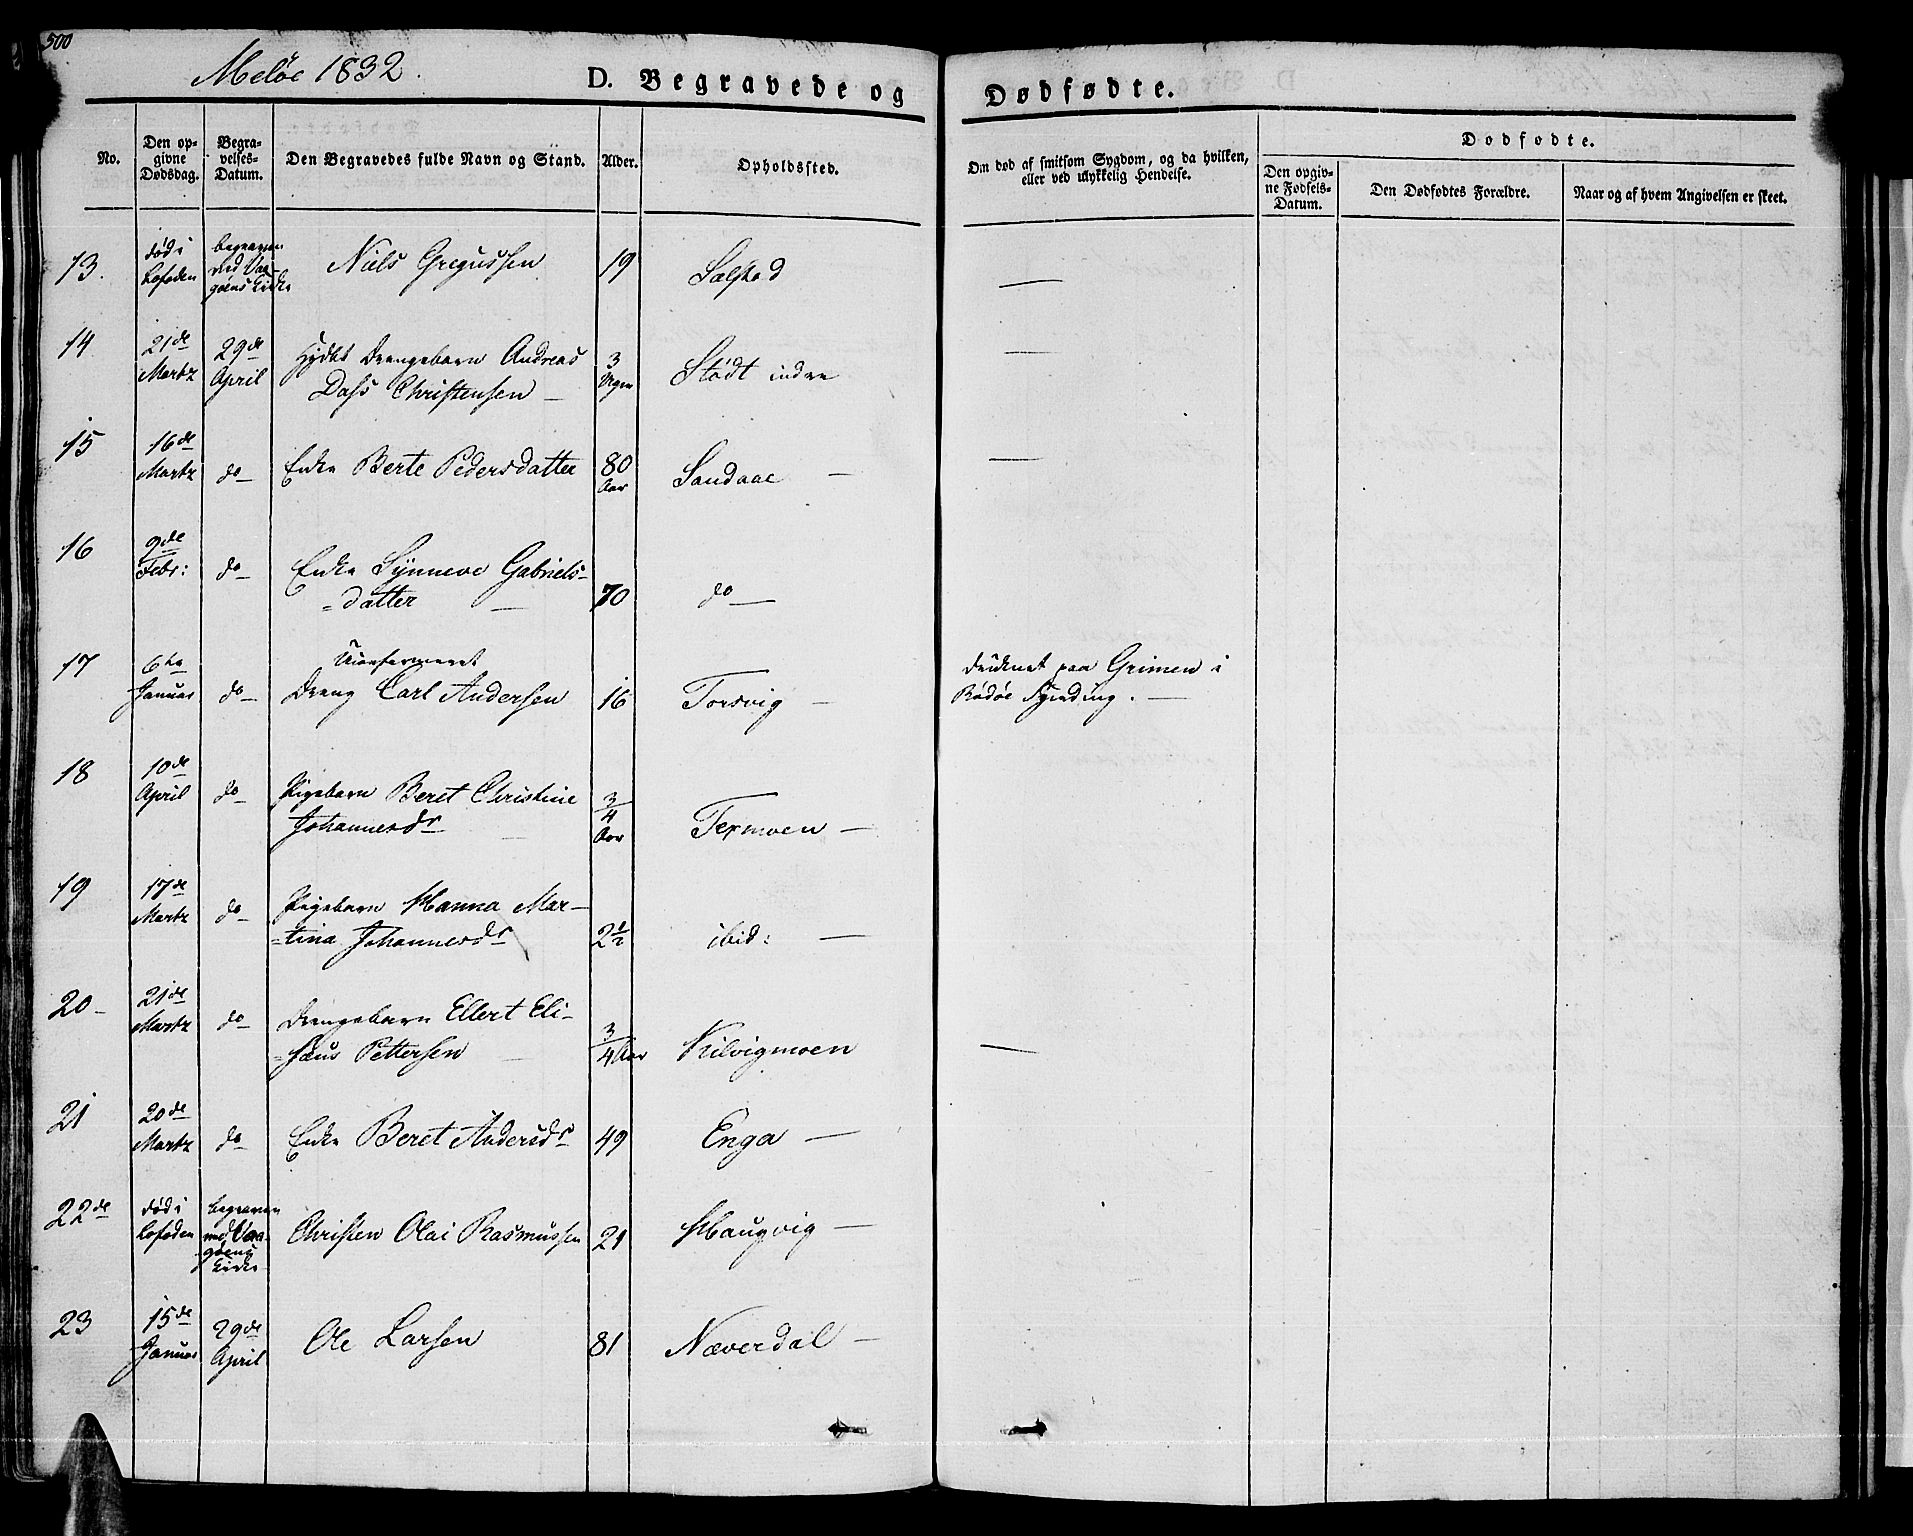 500
Meløe 1832.
D. Begravede og Dødfødte.
No.
Den op-
givne
Dødsdag.
Begra-
velses-
Datum.
Den Begravedes fulde Navn og Stand.
Alder.
Opholdssted.
Om død af smitsom Sygdom, og da hvilken,
eller ved ulykkelig Hendelse.
Dødfødte.
Den opgiv-
ne Fødsels-
Datum.
Den Dødfødtes Forældre.
Naar og af hvem Angivelsen er skeet.
13. død i Lofoden begraven ved Vaa-
goens Kirke Niels Gregussen 19 Sælstad —
14 21de Martz 29de April Drengebarn Andreas
Dass Christensen — 3 Uger Stødt indre —
15 16de Martz do— Enke Berte Pedersdatter 80 Aar Sandaae — —
16 9de Febr: do— Enke Synneve Gabriels-
=datter — 70 do—
17 6te Januar do— Uconfirmeret
Dreng Carl Andersen 16 Torsvig — druknet paa Grimen i
Rødøe Fjerding. —
18 10de April do— Pigebarn Beret Christine
Johannesdr 3/4 Aar Texmoen —
19 17de Martz do— Pigebarn Hanna Mar-
=tina Johannesdr 2 1/2 ibid: —
20— 21de Martz do— Drengebarn Ellert Eli-
=sæus Pettersen — 3/4 Aar Kilvigmoen —
21 20de Martz do— Enke Beret Andersdr 49 Enga —
22de død i Lofoden begraven ved Vaa-
goens
Kirke Christen Olai Rasmussen 21 Haugvig —
23 15de Januar 29de April Ole Larsen 81 Næverdal —